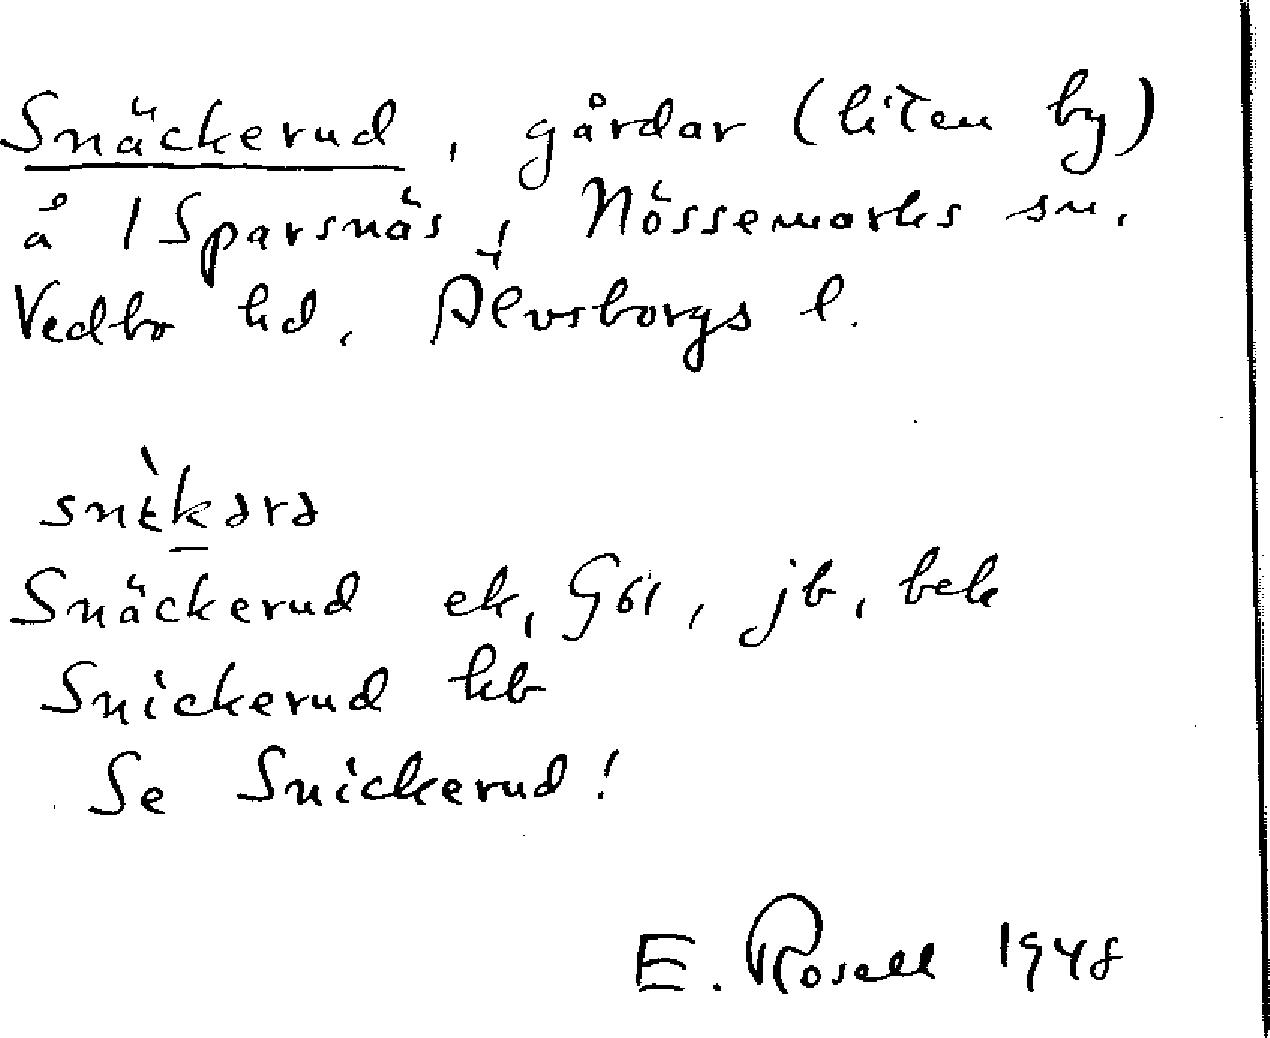 Snäckerud, gårdar (liten by)
å 1 Sparsnäs, Nössemarks sn.
Vedbo hd. Älvsborgs l.
snɛ̀kərə
Snäckerud ek, Göl, jb, bek
Snickerud kb
Se Snickerud!
E. Rosell 1948